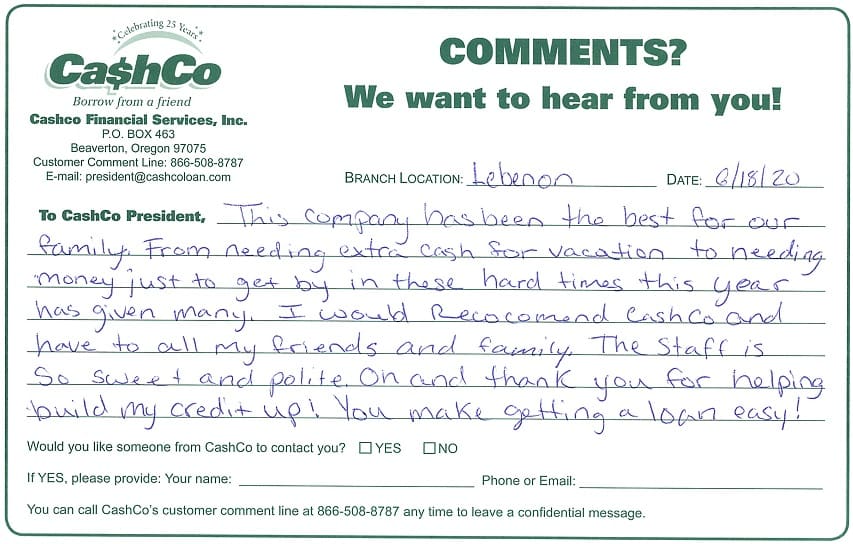 Celebrating 25 Years
Ca$hCo
Borrow from a friend
Cashco Financial Services, Inc.
P.O. BOX 463
Beaverton, Oregon 97075
Customer Comment Line: 866-508-8787
E-mail: president@cashcoloan.com
COMMENTS?
We want to hear from you!
BRANCH LOCATION: Lebenon DATE: 6/18/20
To CashCo President, This company has been the best for our
family. From needing extra cash for vacation to needing
money just to get by in these hard times this year
has given many. I would Recocomend CashCo and
have to all my friends and family. The Staff is
So sweet and polite. On and thank you for helping
build my credit up! You make getting a loan easy!
Would you like someone from CashCo to contact you? ☐ YES ☐ NO
If YES, please provide: Your name: Phone or Email:
You can call CashCo's customer comment line at 866-508-8787 any time to leave a confidential message.